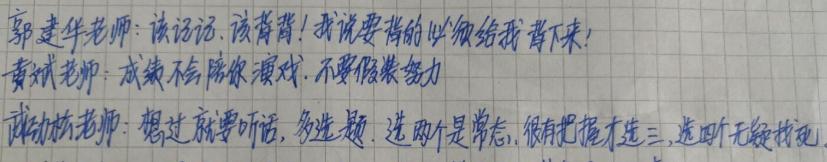 郭建华老师：该记记、该背背！我说要背的必须给我背下来！
黄斌老师：成绩不会陪你演戏．不要假装努力
武劲松老师：想过就要听话，多选题．选两个是常态，很有把握才选三，选四个无疑找死．